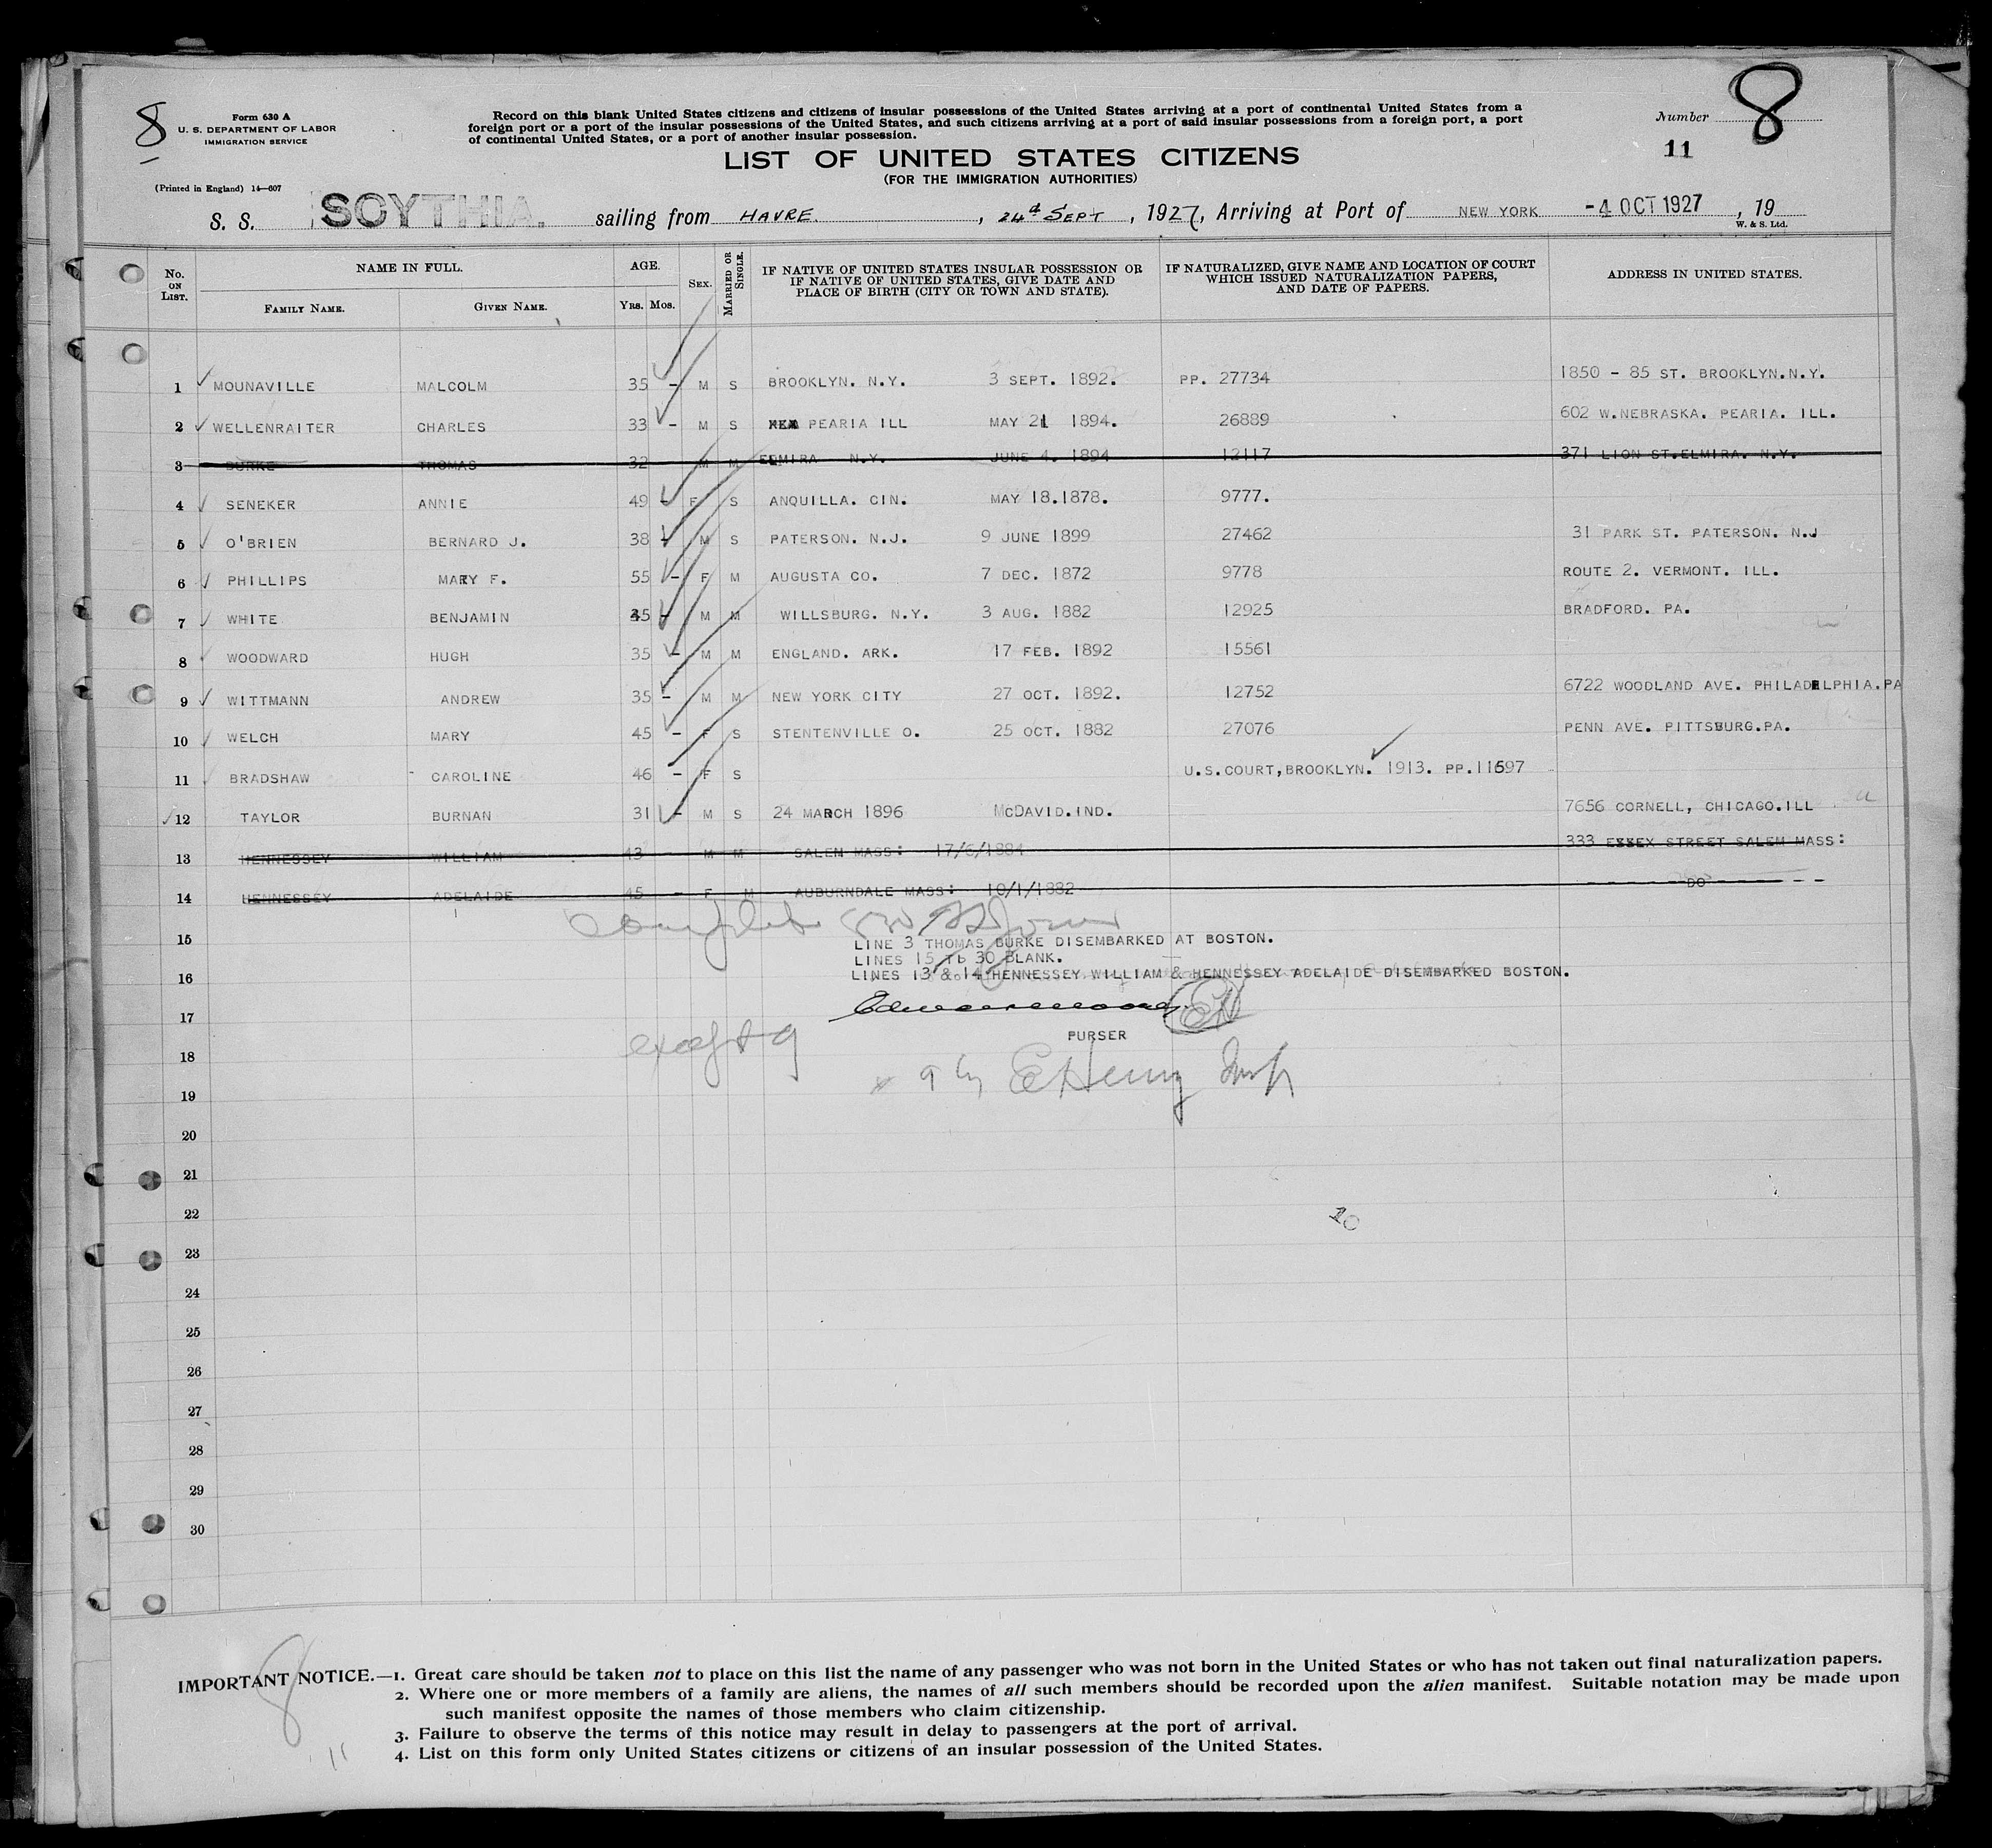 8
8
Form 630 A
U. S. DEPARTMENT OF LABOR
IMMIGRATION SERVICE
Record on this blank United States citizens and citizens of insular possessions of the United States arriving at a port of continental United States from a
foreign port or a port of the insular possessions of the United States, and such citizens arriving at a port of said insular possessions from a foreign port, a port
of continental United States, or a port of another insular possession.
Number
11
LIST OF UNITED STATES CITIZENS
(FOR THE IMMIGRATION AUTHORITIES)
(Printed in England) 14—607
S. S. SCYTHIA. sailing from HAVRE. , 24d SEPT , 1927, Arriving at Port of NEW YORK -4 OCT 1927 , 19
W. & S. Ltd.
No. ON LIST.
NAME IN FULL.
FAMILY NAME.
GIVEN NAME.
AGE.
YRS. MOS.
SEX.
MARRIED OR SINGLE.
IF NATIVE OF UNITED STATES INSULAR POSSESSION OR
IF NATIVE OF UNITED STATES, GIVE DATE AND
PLACE OF BIRTH (CITY OR TOWN AND STATE).
IF NATURALIZED, GIVE NAME AND LOCATION OF COURT
WHICH ISSUED NATURALIZATION PAPERS,
AND DATE OF PAPERS.
ADDRESS IN UNITED STATES.
1 MOUNAVILLE MALCOLM 35 - M S BROOKLYN. N.Y. 3 SEPT. 1892. PP. 27734 1850 - 85 ST. BROOKLYN.N.Y.
2 WELLENRAITER CHARLES 33 - M S PEARIA ILL MAY 21 1894. 26889 602 W.NEBRASKA. PEARIA. ILL.
3 BURKE THOMAS 32 M M ELMIRA N.Y. JUNE 4. 1894 12117 371 LION ST.ELMIRA. N.Y.
4 SENEKER ANNIE 49 - F S ANQUILLA. CIN. MAY 18.1878. 9777.
5 O'BRIEN BERNARD J. 38 - M S PATERSON. N.J. 9 JUNE 1899 27462 31 PARK ST. PATERSON. N.J
6 PHILLIPS MARY F. 55 - F M AUGUSTA CO. 7 DEC. 1872 9778 ROUTE 2. VERMONT. ILL.
7 WHITE BENJAMIN 45 - M M WILLSBURG. N.Y. 3 AUG. 1882 12925 BRADFORD. PA.
8 WOODWARD HUGH 35 - M M ENGLAND. ARK. 17 FEB. 1892 15561
9 WITTMANN ANDREW 35 - M M NEW YORK CITY 27 OCT. 1892. 12752 6722 WOODLAND AVE. PHILADELPHIA.PA
10 WELCH MARY 45 - F S STENTENVILLE O. 25 OCT. 1882 27076 PENN AVE. PITTSBURG.PA.
11 BRADSHAW CAROLINE 46 - F S U.S.COURT,BROOKLYN. 1913. PP.11697
12 TAYLOR BURNAN 31 - M S 24 MARCH 1896 McDAVID.IND. 7656 CORNELL, CHICAGO.ILL
13 HENNESSEY WILLIAM 43 - M M SALEM MASS: 17/6/1884 333 ESSEX STREET SALEM MASS:
14 HENNESSEY ADELAIDE 45 - F M AUBURNDALE MASS: 10/1/1882 - - - - - - DO - - - - - -
15 LINE 3 THOMAS BURKE DISEMBARKED AT BOSTON.
LINES 15 To 30 BLANK.
16 LINES 13 & 14 HENNESSEY WILLIAM & HENNESSEY ADELAIDE DISEMBARKED BOSTON.
17
PURSER
18 except 9
19
20
21
22
10
23
24
25
26
27
28
29
30
8
11
IMPORTANT NOTICE.—1. Great care should be taken not to place on this list the name of any passenger who was not born in the United States or who has not taken out final naturalization papers.
2. Where one or more members of a family are aliens, the names of all such members should be recorded upon the alien manifest. Suitable notation may be made upon
such manifest opposite the names of those members who claim citizenship.
3. Failure to observe the terms of this notice may result in delay to passengers at the port of arrival.
4. List on this form only United States citizens or citizens of an insular possession of the United States.